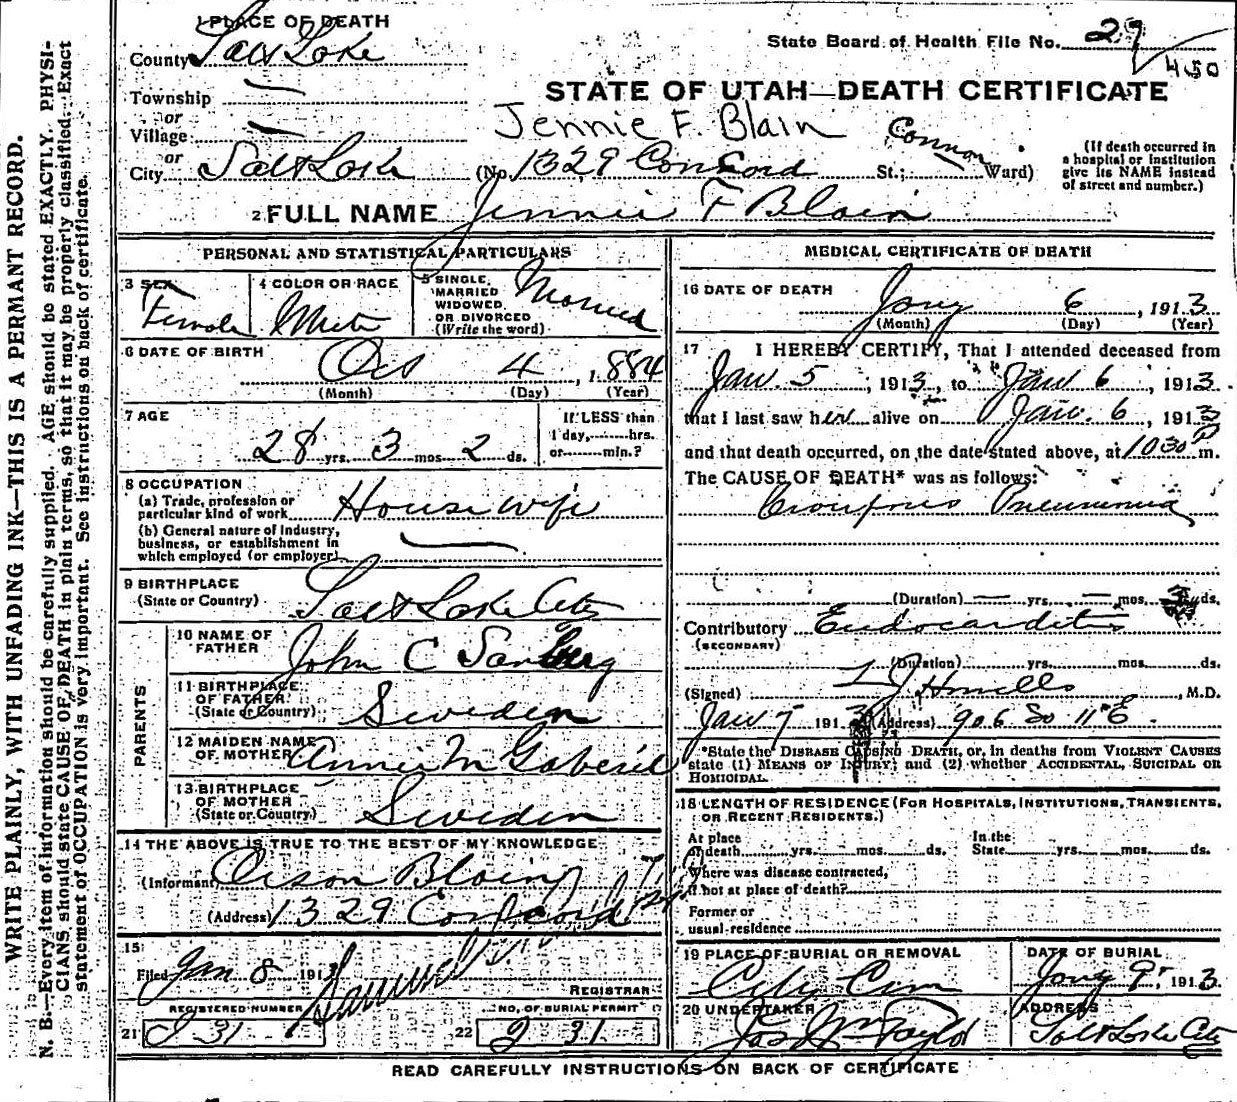 WRITE PLAINLY, WITH UNFADING INK—THIS IS A PERMANT RECORD.
N. B.—Every item of information should be carefully supplied. AGE should be stated EXACTLY. PHYSI-
CIANS should state CAUSE OF DEATH in plain terms, so that it may be properly classified. Exact
statement of OCCUPATION is very important. See instructions on back of certificate.
1 PLACE OF DEATH
County Salt Lake
State Board of Health File No. 29
450
STATE OF UTAH—DEATH CERTIFICATE
Township —
or
Village —
or
Jennie F. Blain
City Salt Lake (No. 1329 Concord St.; Ward)
(If death occurred in
a hospital or institution
give its NAME instead
of street and number.)
2 FULL NAME Jennie F Blain
PERSONAL AND STATISTICAL PARTICULARS
3 SEX
Female
4 COLOR OR RACE
White
5 SINGLE,
MARRIED
WIDOWED
OR DIVORCED
(Write the word)
Married
6 DATE OF BIRTH
Oct 4, 1884
(Month) (Day) (Year)
7 AGE
28 yrs. 3 mos. 2 ds.
If LESS than
1 day, hrs.
or min.?
8 OCCUPATION
(a) Trade, profession or
particular kind of work House wife
(b) General nature of industry,
business, or establishment in
which employed (or employer) —
9 BIRTHPLACE
(State or Country) Salt Lake City
PARENTS
10 NAME OF
FATHER John C Sandberg
11 BIRTHPLACE
OF FATHER
(State or Country) Sweden
12 MAIDEN NAME
OF MOTHER Annie M Gabriel
13 BIRTHPLACE
OF MOTHER
(State or Country) Sweden
14 THE ABOVE IS TRUE TO THE BEST OF MY KNOWLEDGE
(Informant) Orson Blain
(Address) 1329 Concord
15
Filed Jan 8 1913
REGISTRAR
REGISTERED NUMBER
21
NO. OF BURIAL PERMIT
22 231
MEDICAL CERTIFICATE OF DEATH
16 DATE OF DEATH
Jany 6, 1913
(Month) (Day) (Year)
17 I HEREBY CERTIFY, That I attended deceased from
Jan. 5, 1913, to Jan 6, 1913
that I last saw her alive on Jan. 6, 1913
and that death occurred, on the date stated above, at 1030 P m.
The CAUSE OF DEATH* was as follows:
Croupous Pneumonia
(Duration) — yrs. — mos. ds.
Contributory Endocarditis
(SECONDARY)
(Duration) yrs. mos. ds.
(Signed) Howells, M.D.
Jan 7 1913 (Address) 906 So 11" E.
*State the DISEASE CAUSING DEATH, or, in deaths from VIOLENT CAUSES
state (1) MEANS OF INJURY; and (2) whether ACCIDENTAL, SUICIDAL OR
HOMICIDAL.
18 LENGTH OF RESIDENCE (FOR HOSPITALS, INSTITUTIONS, TRANSIENTS,
OR RECENT RESIDENTS.)
At place
of death yrs. mos. ds.
In the
State yrs. mos. ds.
Where was disease contracted,
if not at place of death?
Former or
usual residence
19 PLACE OF BURIAL OR REMOVAL
City Cem
DATE OF BURIAL
Jany 9", 1913
20 UNDERTAKER
Jos Wm Taylor
ADDRESS
Salt Lake City
READ CAREFULLY INSTRUCTIONS ON BACK OF CERTIFICATE